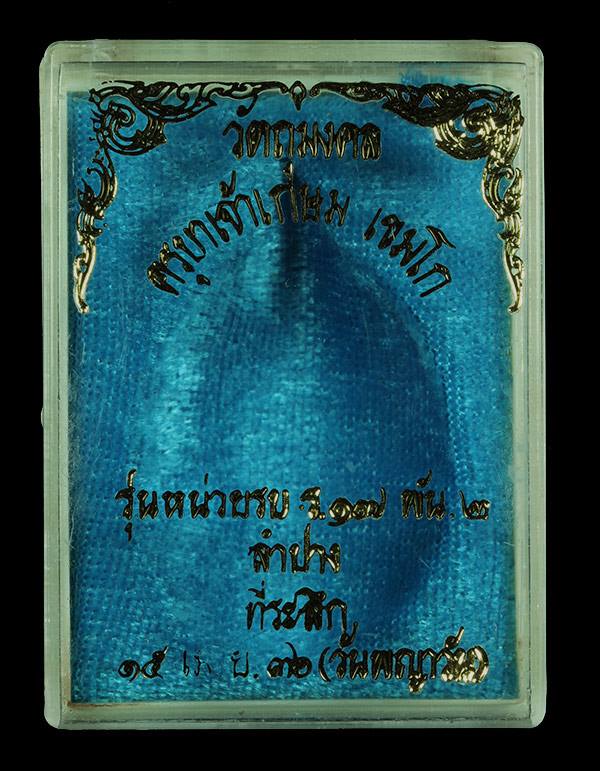 วัตถุมงคล
ครูบาเจ้าเกษม เขมโก
รุ่นหน่วยรบ ร.๑๗ พัน.๒
ลำปาง
ที่ระลึก
๑๕ เม.ย. ๓๖ (วันพญาวัน)